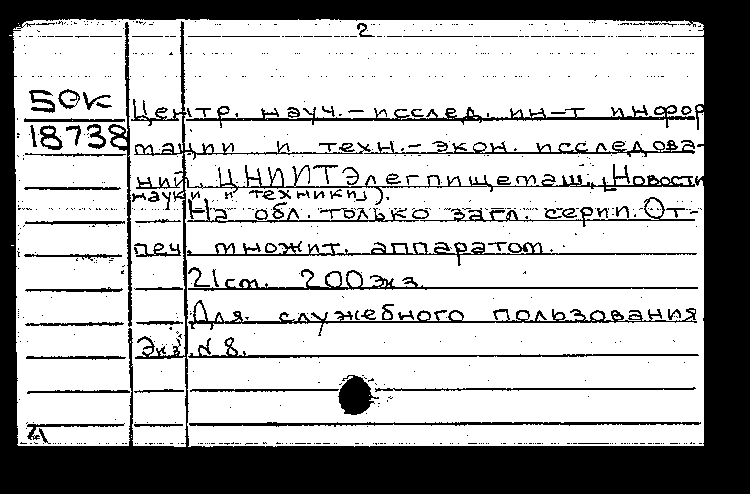 2
50к
18738
Центр. науч.-исслед. ин-т инфор
мации и техн.-экон. исследова-
ний. ЦНИИТЭлегпищемаш. (Новости
науки и техники).
На обл. только загл. серии. От-
печ. множит. аппаратом.
21см. 200экз.
Для служебного пользования.
Экз. №8.
21